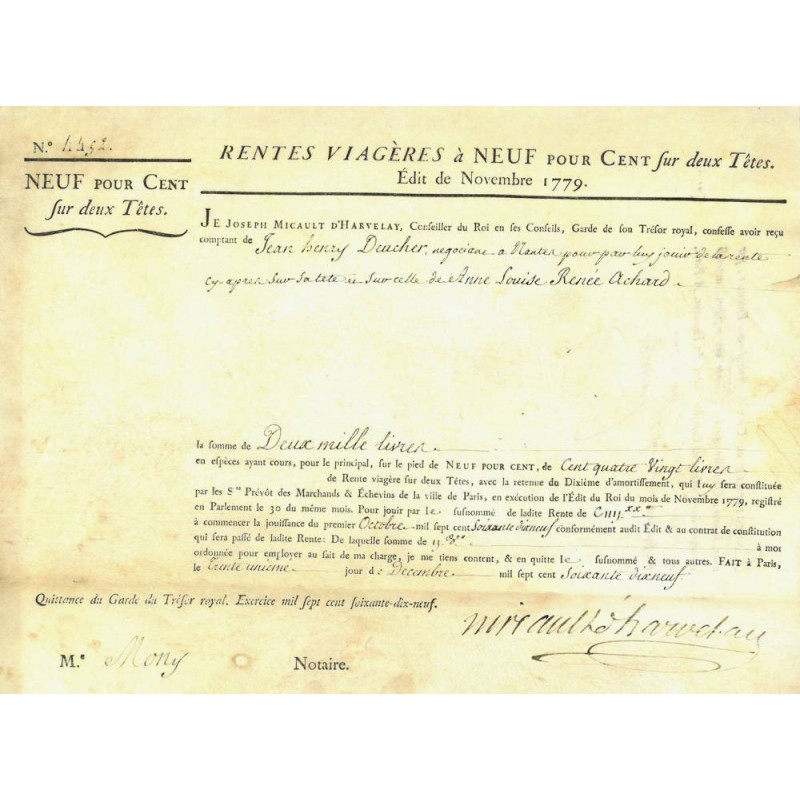 N.º 4452.
NEUF POUR CENT
ſur deux Têtes.
RENTES VIAGÈRES à NEUF POUR CENT ſur deux Têtes.
Édit de Novembre 1779.
JE JOSEPH MICAULT D'HARVELAY, Conſeiller du Roi en ſes Conſeils, Garde de ſon Tréſor royal, confeſſe avoir reçu
comptant de Jean henry Deucher, negociant a Nantes pour par luy jouir de la rente
cy apres sur sa tete et sur celle de Anne Louise Renée Achard.
la ſomme de Deux mille livres
en eſpèces ayant cours, pour le principal, ſur le pied de NEUF POUR CENT, de Cent quatre Vingt livres
de Rente viagère ſur deux Têtes, avec la retenue du Dixième d'amortiſſement, qui luy ſera conſtituée
par les S.rs Prévôt des Marchands & Échevins de la ville de Paris, en exécution de l'Édit du Roi du mois de Novembre 1779, regiſtré
en Parlement le 30 du même mois. Pour jouir par le ſuſnommé de ladite Rente de C iiij xx lt
à commencer la jouiſſance du premier Octobre mil ſept cent soixante dixneuf conformément audit Édit & au contrat de conſtitution
qui ſera paſſé de ladite Rente: De laquelle ſomme de à moi
ordonnée pour employer au fait de ma charge, je me tiens content, & en quitte le ſuſnommé & tous autres. FAIT à Paris,
le trente unieme jour de Decembre mil ſept cent soixante dixneuf
Quittance du Garde du Tréſor royal. Exercice mil ſept cent ſoixante-dix-neuf.
micault d'harvelay
M.e Mony Notaire.